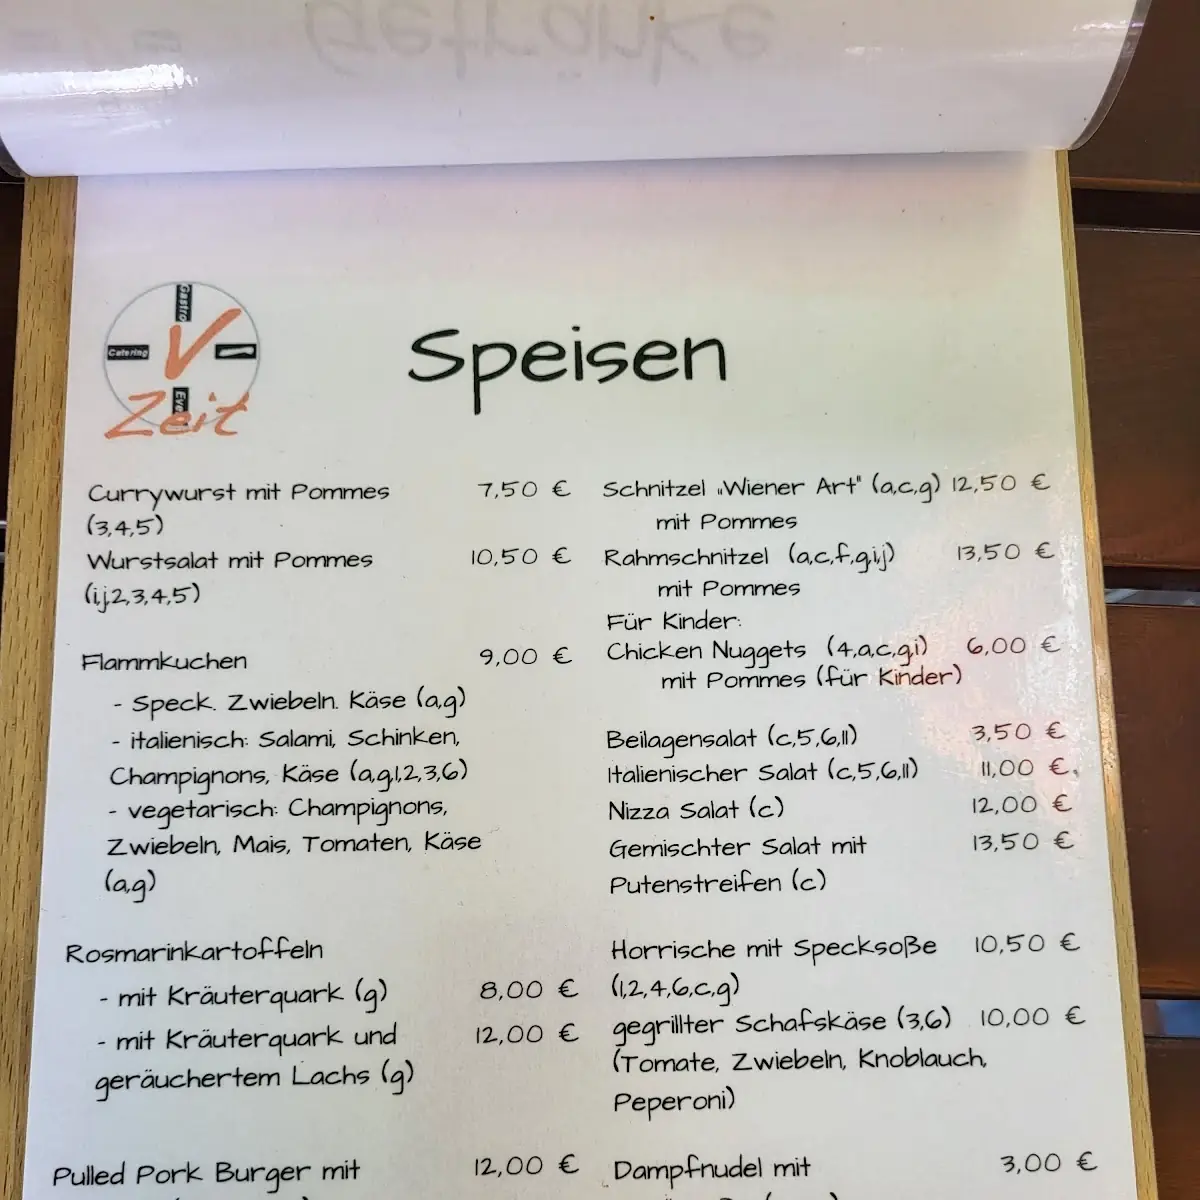 Getränke
Gastro
Catering
V
Zeit
Speisen
Currywurst mit Pommes 7,50 €
(3,4,5)
Wurstsalat mit Pommes 10,50 €
(i,j,2,3,4,5)
Flammkuchen 9,00 €
- Speck. Zwiebeln. Käse (a,g)
- italienisch: Salami, Schinken,
Champignons, Käse (a,g,1,2,3,6)
- vegetarisch: Champignons,
Zwiebeln, Mais, Tomaten, Käse
(a,g)
Rosmarinkartoffeln
- mit Kräuterquark (g) 8,00 €
- mit Kräuterquark und 12,00 €
geräuchertem Lachs (g)
Pulled Pork Burger mit 12,00 €
Schnitzel „Wiener Art" (a,c,g) 12,50 €
mit Pommes
Rahmschnitzel (a,c,f,g,i,j) 13,50 €
mit Pommes
Für Kinder:
Chicken Nuggets (4,a,c,g,i) 6,00 €
mit Pommes (für Kinder)
Beilagensalat (c,5,6,11) 3,50 €
Italienischer Salat (c,5,6,11) 11,00 €
Nizza Salat (c) 12,00 €
Gemischter Salat mit 13,50 €
Putenstreifen (c)
Horrische mit Specksoße 10,50 €
(1,2,4,6,c,g)
gegrillter Schafskäse (3,6) 10,00 €
(Tomate, Zwiebeln, Knoblauch,
Peperoni)
Dampfnudel mit 3,00 €